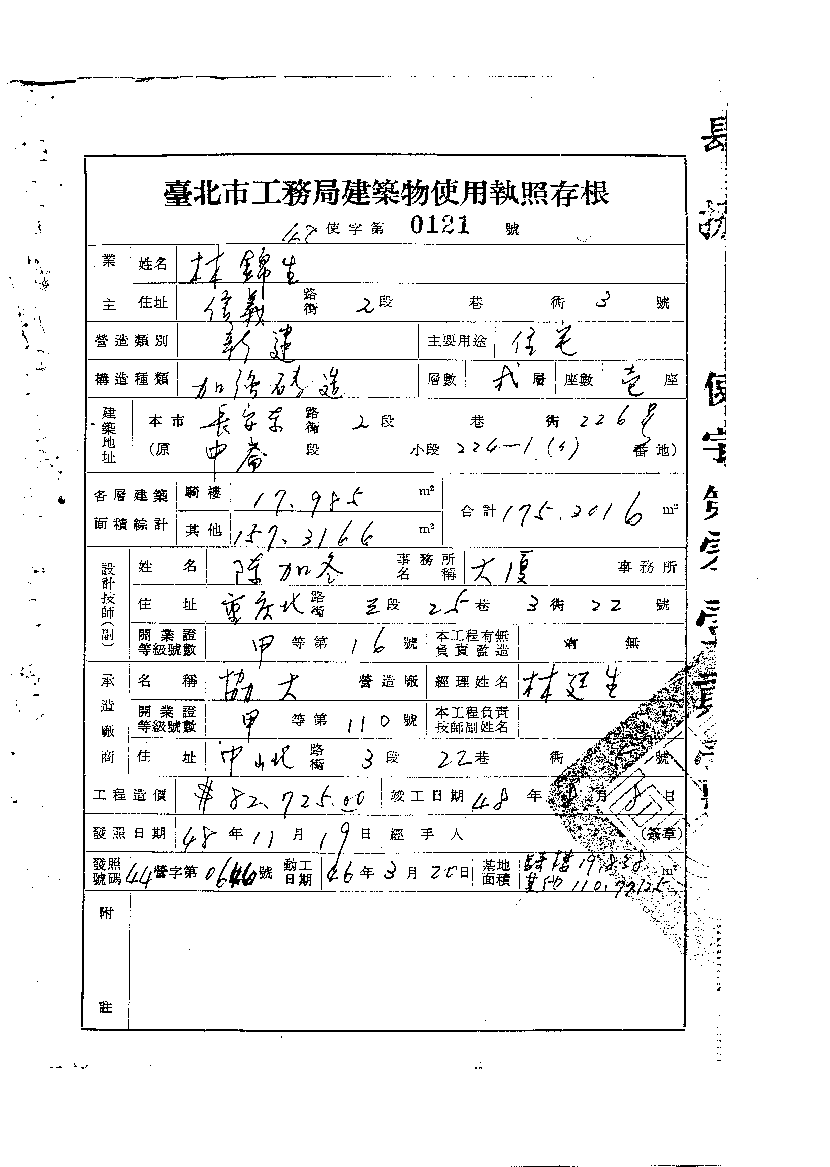 臺北市工務局建築物使用執照存根
使字第 0121 號
業主 姓名 林錦生
住址 信義 路街 2段 巷 衖 3 號
營造類別 新建 主要用途 住宅
構造種類 加強磚造 層數 弍層 座數 壹座
建築地址 本市 長安東 路街 2段 巷 衖 226號
(原 中崙 段 小段 224-1(4) 番地)
各層建築面積綜計 騎樓 17.985 m² 合計 175.3016 m²
其他 157.3166 m²
設計技師(副) 姓名 陳加冬 事務所名稱 大廈 事務所
住址 重慶北 路街 三段 25巷 3衖 22 號
開業證等級號數 甲 等第 16 號 本工程有無負責監造 有 無
承造廠商 名稱 協大 營造廠 經理姓名 林廷生
開業證等級號數 甲 等第 110 號 本工程負責技師副姓名
住址 中山北 路街 3段 22巷 衖 號
工程造價 $82,725.00 竣工日期 48年 月8日
發照日期 48年11月19日 經手人 (簽章)
發照號碼 44營字第0644號 動工日期 46年3月20日 基地面積 m²
附註